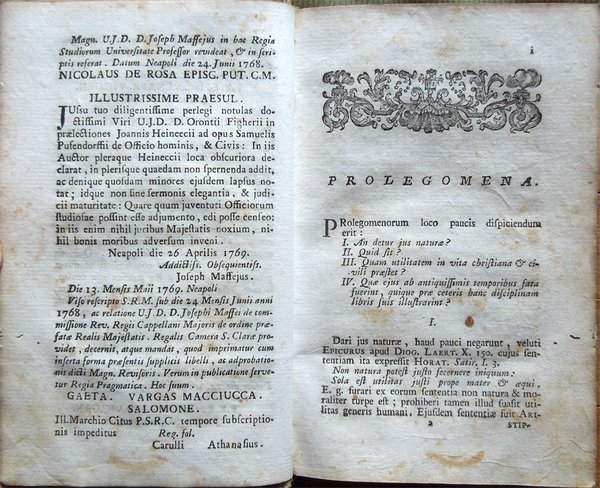 Magn. U.J.D. D. Joseph Maffejus in hac Regia
Studiorum Universitate Professor revideat, & in scri-
ptis referat. Datum Neapoli die 24. Junii 1768.
NICOLAUS DE ROSA EPISC. PUT. C.M.
ILLUSTRISSIME PRAESUL.
JUssu tuo diligentissime perlegi notulas do-
ctissimi Viri U.J.D. D. Orontii Figherii in
prælectiones Joannis Heineccii ad opus Samuelis
Pufendorffii de Officio hominis, & Civis: In iis
Auctor pleraque Heineccii loca obscuriora de-
clarat, in plerisque quædam non spernenda addit,
ac denique quosdam minores ejusdem lapsus no-
tat; idque non sine sermonis elegantia, & judi-
cii maturitate: Quare quum juventuti Officiorum
studiosae possint esse adjumento, edi posse censeo:
in iis enim nihil juribus Majestatis noxium, ni-
hil bonis moribus adversum inveni.
Neapoli die 26 Aprilis 1769.
Addictiss. Obsequentiss.
Joseph Maffejus.
Die 13. Mensis Maii 1769. Neapoli
Viso rescripto S.R.M. sub die 24 Mensis Junii anni
1768, ac relatione U.J.D. D. Josephi Maffei de com-
missione Rev. Regii Cappellani Majoris de ordine præ-
fatæ Realis Majestatis. Regalis Camera S. Claræ pro-
videt, decernit, atque mandat, quod imprimatur cum
inserta forma præsentis supplicis libelli, ac adprobatio-
nis dicti Magn. Revisoris. Verum in publicatione serve-
tur Regia Pragmatica. Hoc suum.
GAETA. VARGAS MACCIUCCA.
SALOMONE.
Ill. Marchio Citus P.S.R.C. tempore subscriptio-
nis impeditus Reg. fol.
Carulli Athanasius.
1
PROLEGOMENA.
PRolegomenorum loco paucis dispiciendum
erit:
I. An detur jus naturæ?
II. Quid sit?
III. Quam utilitatem in vita christiana & ci-
vili præstet?
IV. Quæ ejus ab antiquissimis temporibus fata
fuerint, quique præ ceteris hanc disciplinam
libris suis illustrarint?
I.
Dari jus naturæ, haud pauci negarunt, veluti
EPICURUS apud DIOG. LAERT. X. 150. cujus sen-
tentiam ita expressit HORAT. Satir. I. 3.
Non natura potest justo secernere iniquum:
Sola est utilitas justi prope mater & æqui.
E. g. furari ex eorum sententia non natura & mo-
raliter turpe est; prohiberi tamen illud suasit uti-
litas generis humani. Ejusdem sententiæ fuit ARI-
a STIP-